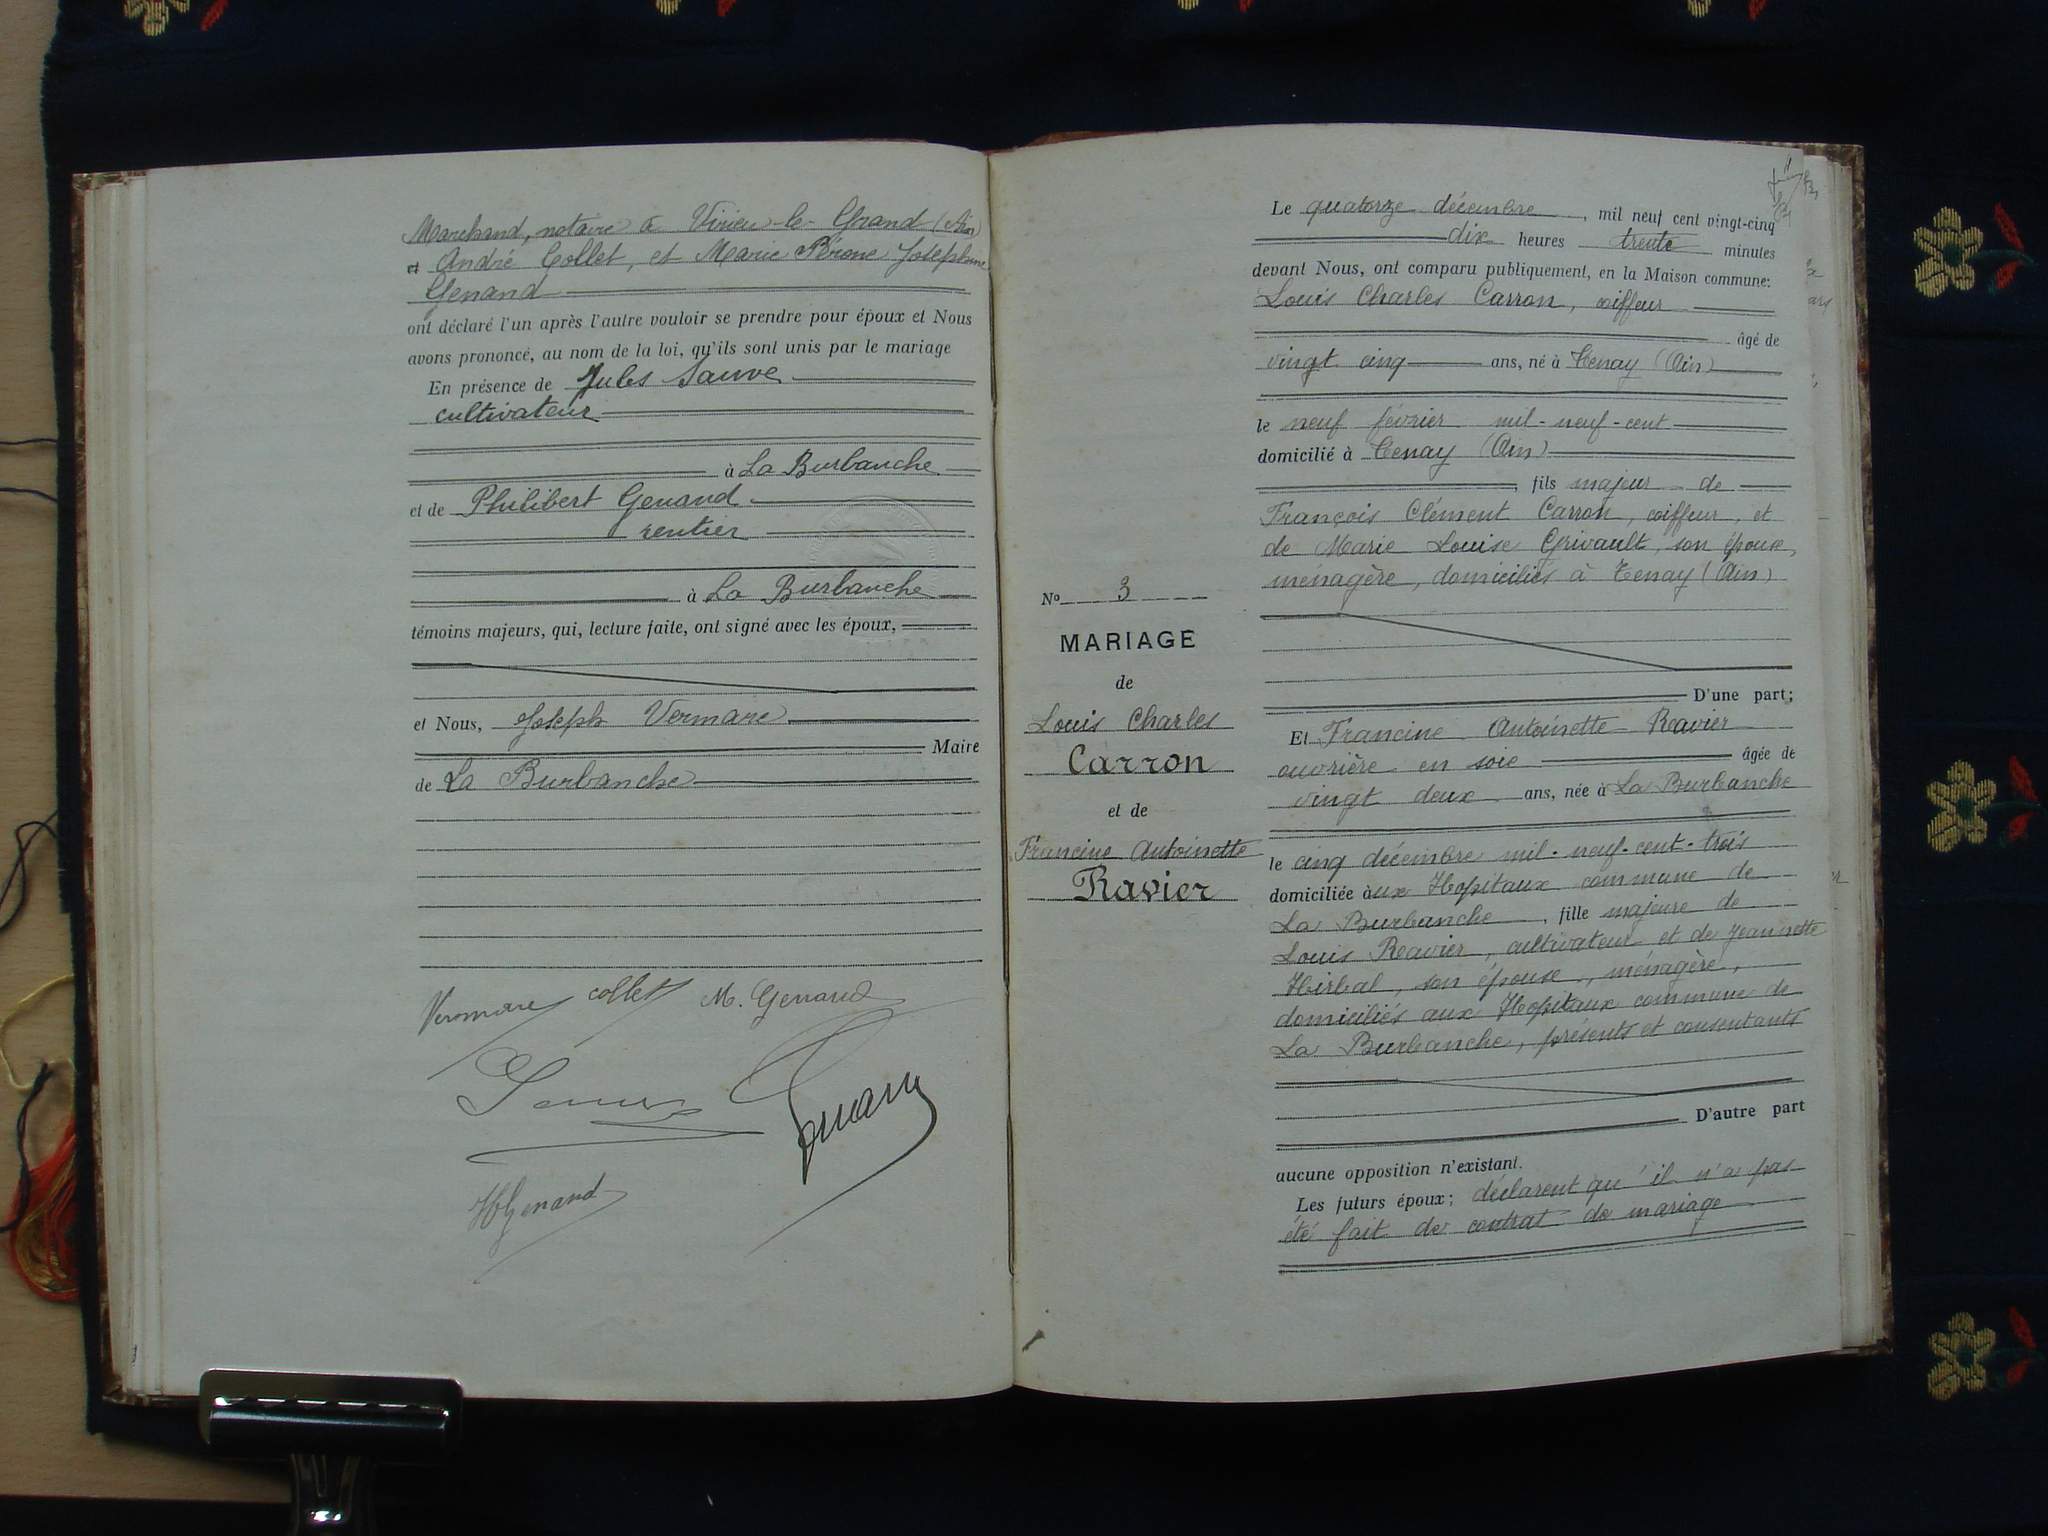 Marchand, notaire à Virieu-le-Grand (Ain)
André Collet, et Marie Pérone Joséphine
Genand
ont déclaré l'un après l'autre vouloir se prendre pour époux et Nous
avons prononcé, au nom de la loi, qu'ils sont unis par le mariage
En présence de Jules Sauve
cultivateur
à La Burbanche
et de Philibert Genand
rentier
à La Burbanche
témoins majeurs, qui, lecture faite, ont signé avec les époux,
et Nous, Joseph Vermare
Maire
de La Burbanche
collet M. Genand
Genand
No 3
MARIAGE
de
Louis Charles
Carron
et de
Francine Antoinette
Ravier
Le quatorze décembre, mil neuf cent vingt-cinq
dix heures trente minutes
devant Nous, ont comparu publiquement, en la Maison commune:
Louis Charles Carron, coiffeur
âgé de
vingt cinq ans, né à Tenay (Ain)
le neuf février mil-neuf-cent
domicilié à Tenay (Ain)
, fils majeur de
François Clément Carron, coiffeur, et
de Marie Louise Grivault, son épouse,
ménagère, domiciliés à Tenay (Ain)
D'une part;
Et Francine Antoinette Ravier
ouvrière en soie âgée de
vingt deux ans, née à La Burbanche
le cinq décembre mil-neuf-cent-trois
domiciliée àux Hopitaux commune de
La Burbanche, fille majeure de
Louis Ravier, cultivateur et de Jeannette
Hirbal, son épouse, ménagère,
domiciliés aux Hopitaux commune de
La Burbanche, présents et consentants
D'autre part
aucune opposition n'existant.
Les futurs époux; déclarent qu'il n'a pas
été fait de contrat de mariage